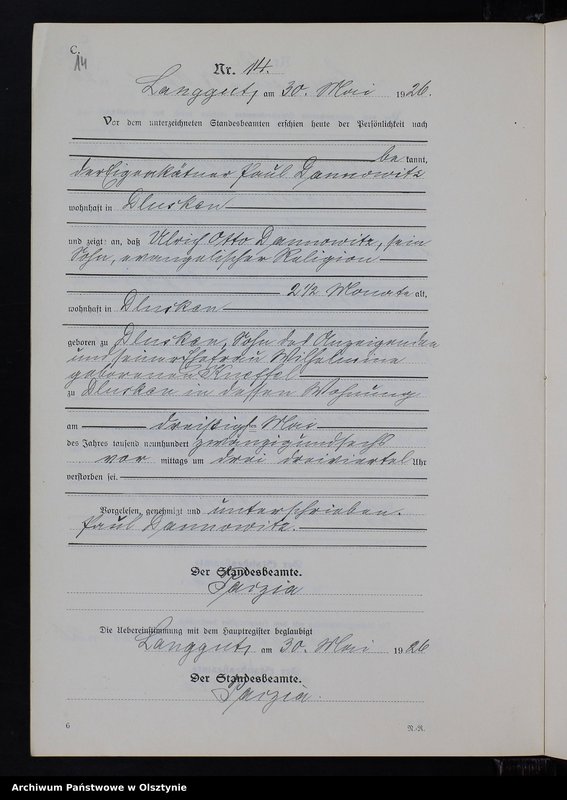 C.
14
Nr. 14.
Langgut, am 30. Mai 1926.
Vor dem unterzeichneten Standesbeamten erschien heute der Persönlichkeit nach
be kannt,
der Eigenkätner Paul Dannowitz
wohnhaft in Dlusken
und zeigte an, daß Ulrich Otto Dannowitz, sein
Sohn, evangelischer Religion
2 1/2 Monate alt,
wohnhaft in Dlusken
geboren zu Dlusken, Sohn des Anzeigenden
und seiner Ehefrau Wilhelmine
geborenen
zu Dlusken in dessen Wohnung
am dreißigst Mai
des Jahres tausend neunhundert zwanzigundsechs
vor mittags um drei dreiviertel Uhr
verstorben sei.
Vorgelesen, genehmigt und unterschrieben.
Paul Dannowitz.
Der Standesbeamte.
Die Uebereinstimmung mit dem Hauptregister beglaubigt
Langgut, am 30. Mai 1926
Der Standesbeamte.
6
N.-R.
Archiwum Państwowe w Olsztynie